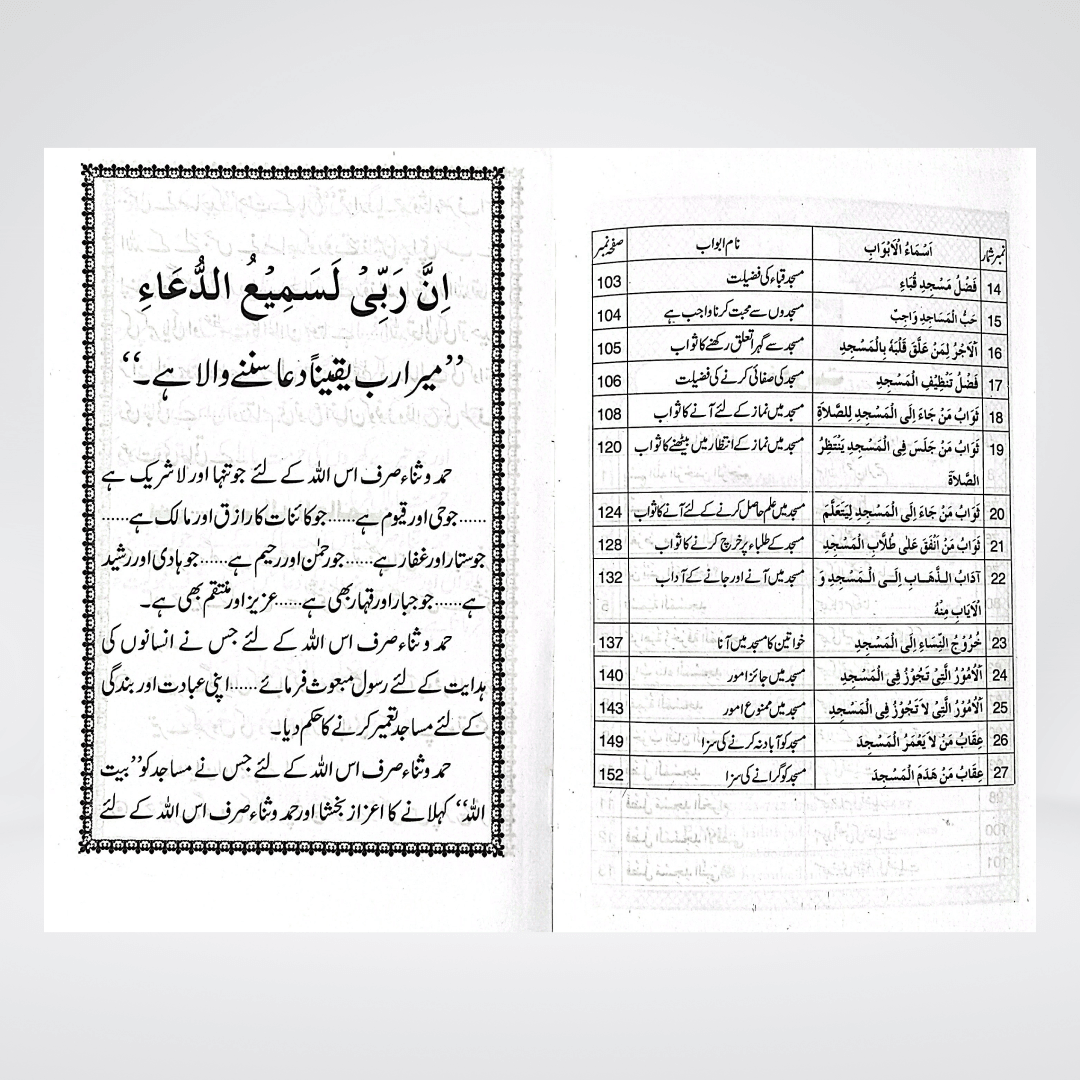 نمبر شمار اَسْمَاءُ الْاَبْوَابِ نام ابواب صفحہ نمبر
14 فَضْلُ مَسْجِدِ قُبَاءٍ مسجد قباء کی فضیلت 103
15 حُبُّ الْمَسَاجِدِ وَاجِبٌ مسجدوں سے محبت کرنا واجب ہے 104
16 اَلْاَجْرُ لِمَنْ عَلَّقَ قَلْبَهُ بِالْمَسْجِدِ مسجد سے گہرا تعلق رکھنے کا ثواب 105
17 فَضْلُ تَنْظِيْفِ الْمَسْجِدِ مسجد کی صفائی کرنے کی فضیلت 106
18 ثَوَابُ مَنْ جَاءَ اِلَى الْمَسْجِدِ لِلصَّلاَةِ مسجد میں نماز کے لئے آنے کا ثواب 108
19 ثَوَابُ مَنْ جَلَسَ فِى الْمَسْجِدِ يَنْتَظِرُ مسجد میں نماز کے انتظار میں بیٹھنے کا ثواب 120
الصَّلاَةَ
20 ثَوَابُ مَنْ جَاءَ اِلَى الْمَسْجِدِ لِيَتَعَلَّمَ مسجد میں علم حاصل کرنے کے لئے آنے کا ثواب 124
21 ثَوَابُ مَنْ اَنْفَقَ عَلٰى طُلَّابِ الْمَسْجِدِ مسجد کے طلباء پر خرچ کرنے کا ثواب 128
22 آدَابُ الـذَّهَـابِ اِلَـى الْمَسْجِدِ وَ مسجد میں آنے اور جانے کے آداب 132
الْاِيَابِ مِنْهُ
23 خُرُوْجُ النِّسَاءِ اِلَى الْمَسْجِدِ خواتین کا مسجد میں آنا 137
24 اَلْاُمُوْرُ الَّتِىْ تَجُوْزُ فِى الْمَسْجِدِ مسجد میں جائز امور 140
25 اَلْاُمُوْرُ الَّتِىْ لاَ تَجُوْزُ فِى الْمَسْجِدِ مسجد میں ممنوع امور 143
26 عِقَابُ مَنْ لاَ يَعْمُرُ الْمَسْجِدَ مسجد کو آباد نہ کرنے کی سزا 149
27 عِقَابُ مَنْ هَدَمَ الْمَسْجِدَ مسجد کو گرانے کی سزا 152
اِنَّ رَبِّىْ لَسَمِيْعُ الدُّعَاءِ
’’میرا رب یقیناً دعا سننے والا ہے۔‘‘
حمد و ثناء صرف اس اللہ کے لئے جو تنہا اور لا شریک ہے
......جو حی اور قیوم ہے......جو کائنات کا رازق اور مالک ہے......
جو ستار اور غفار ہے......جو رحمٰن اور رحیم ہے......جو ہادی اور رشید
ہے......جو جبار اور قہار بھی ہے......عزیز اور منتقم بھی ہے۔
حمد و ثناء صرف اس اللہ کے لئے جس نے انسانوں کی
ہدایت کے لئے رسول مبعوث فرمائے......اپنی عبادت اور بندگی
کے لئے مساجد تعمیر کرنے کا حکم دیا۔
حمد و ثناء صرف اس اللہ کے لئے جس نے مساجد کو ’’بیت
اللہ‘‘ کہلانے کا اعزاز بخشا اور حمد و ثناء صرف اس اللہ کے لئے